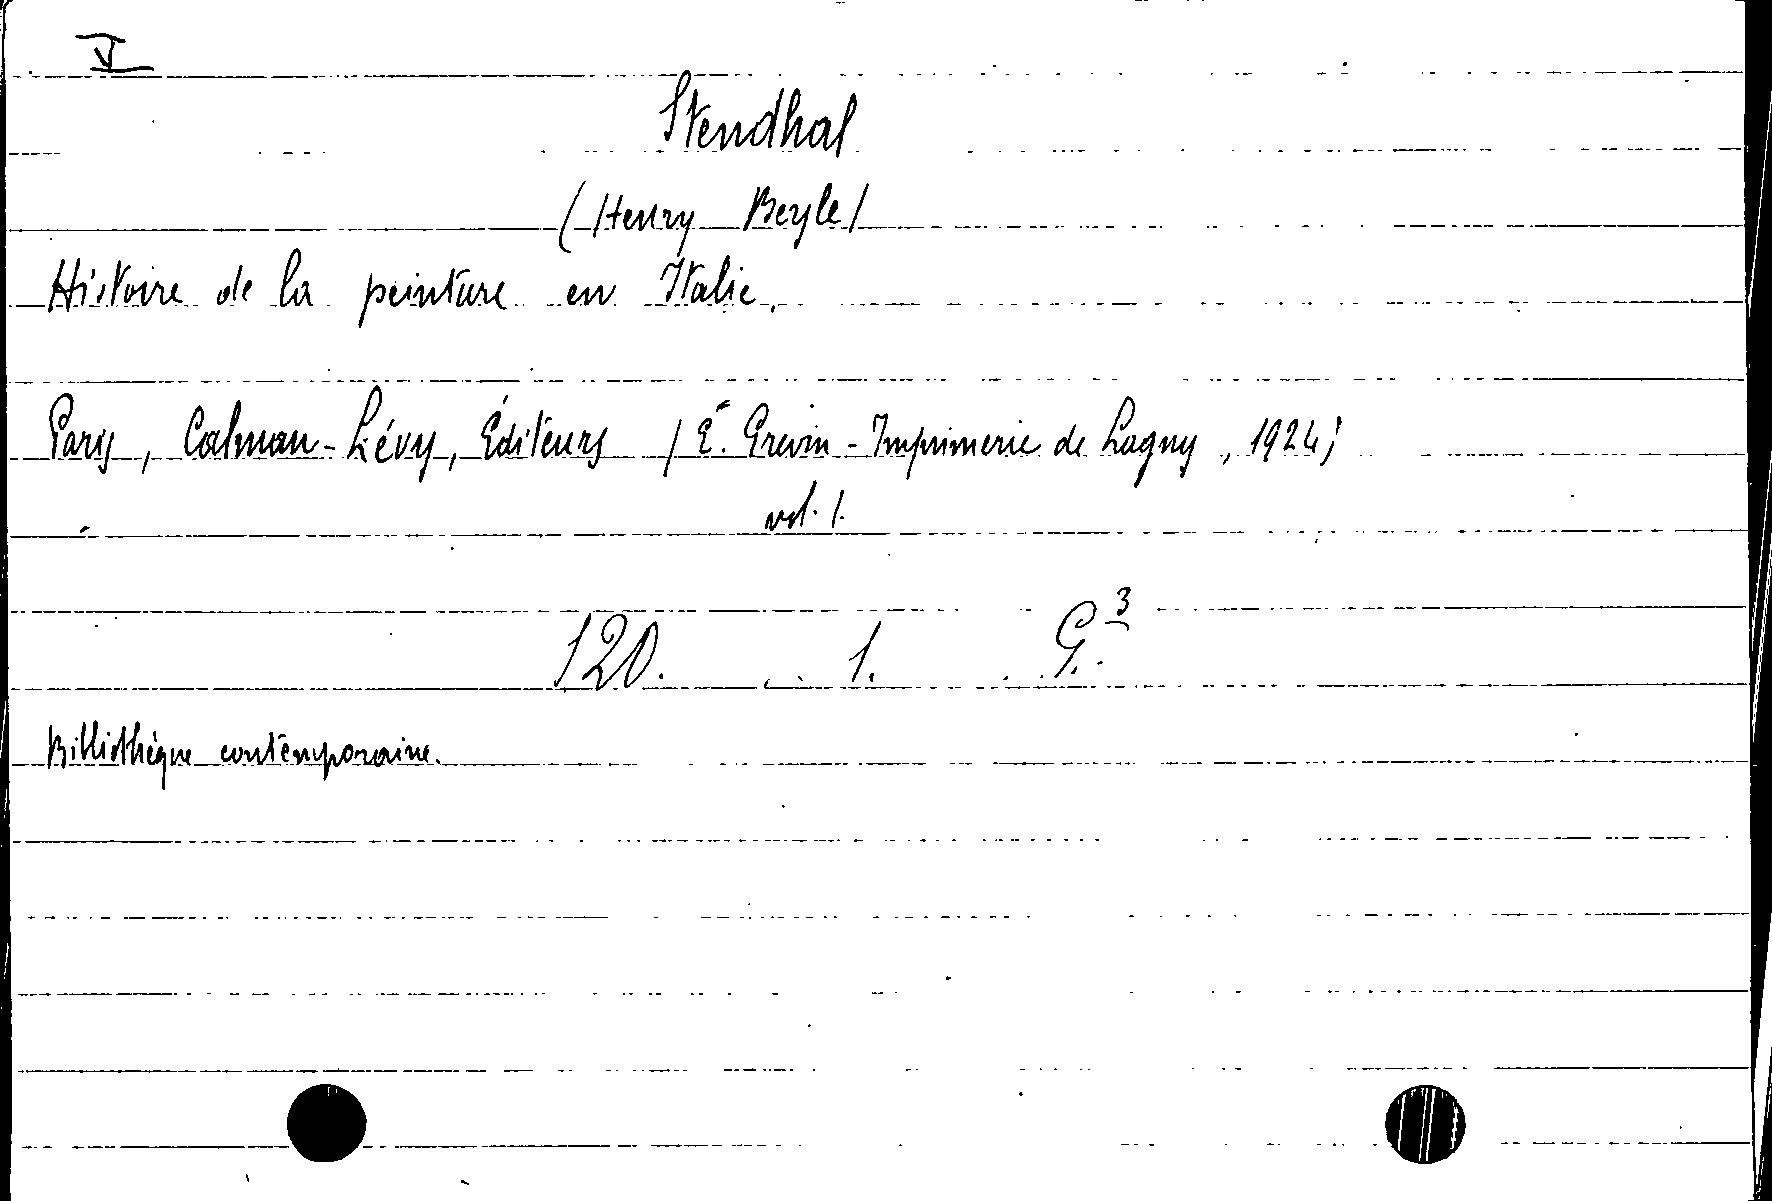 V
Stendhal
(Henry Beyle/
Histoire de la peinture en Italie.
Paris, Calman-Lévy, Éditeurs /É. Grevin - Imprimerie de Lagny, 1924/
vol. 1.
120. 1. G.³
Bibliothèque contemporaine.